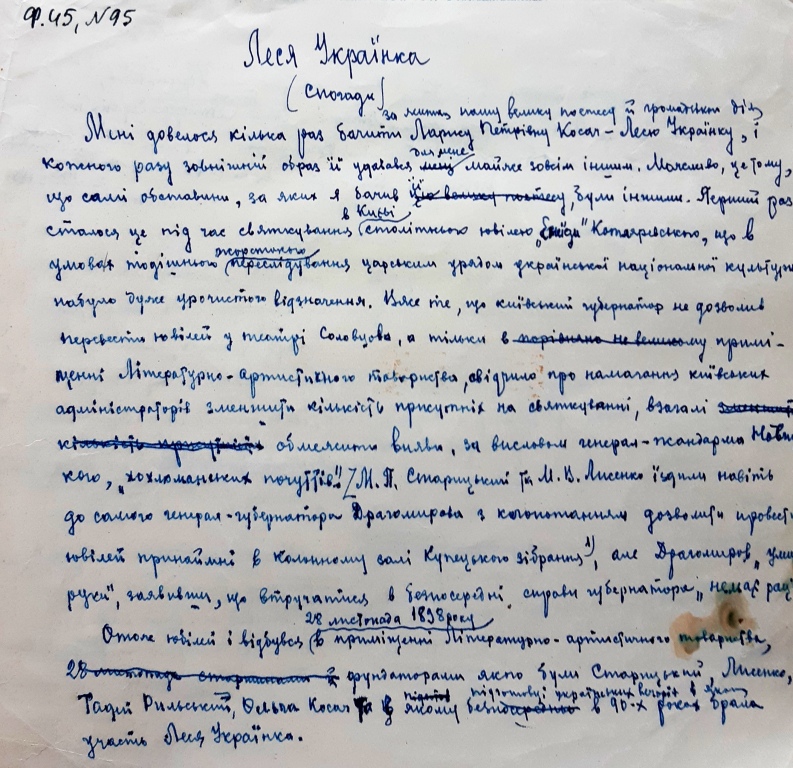 Ф.45, №95
Леся Українка
(Спогади)
за життя нашу велику поетесу й громадську дія
Мені довелося кілька раз бачити Ларису Петрівну Косач-Лесю Українку, і
для мене
кожного разу зовнішній образ її удавався майже зовсім іншим. Можливо, це тому,
що самі обставини, за яких я бачив її цю велику поетесу, були іншими. Перший раз
в Києві
сталося це під час святкування столітнього ювілею „Енеїди" Котляревського, що в
жорстокого
умовах тодішнього переслідування царським урядом української національної культури
набуло дуже урочистого відзначення. Вже те, що київський губернатор не дозволив
перевести ювілей у театрі Соловцова, а тільки в порівняно невеликому примі-
щенні Літературно-артистичного товариства, свідчило про намагання київських
адміністраторів зменшити кількість присутніх на святкуванні, взагалі зменшити
кількість присутніх обмежити вияви, за висловом генерал-жандарма Нови
кого, „хохломанських почуттів". М. П. Старицький та М. В. Лисенко їздили навіть
до самого генерал-губернатора Драгомирова з клопотанням дозволити провести
ювілей принаймні в колонному залі Купецького зібрання¹⁾, але Драгомиров „умив
руки", заявивши, що втручатися в безпосередні справи губернатора „немає рації
28 листопада 1898 року
Отже ювілей і відбувся в приміщенні Літературно-артистичного товариства,
28 листопада фундаторами якого були Старицький, Лисенко,
підготовці українських вечорів в
Тадей Рильський, Ольга Косач та в якому безпосередньо в 90-х роках брала
участь Леся Українка.